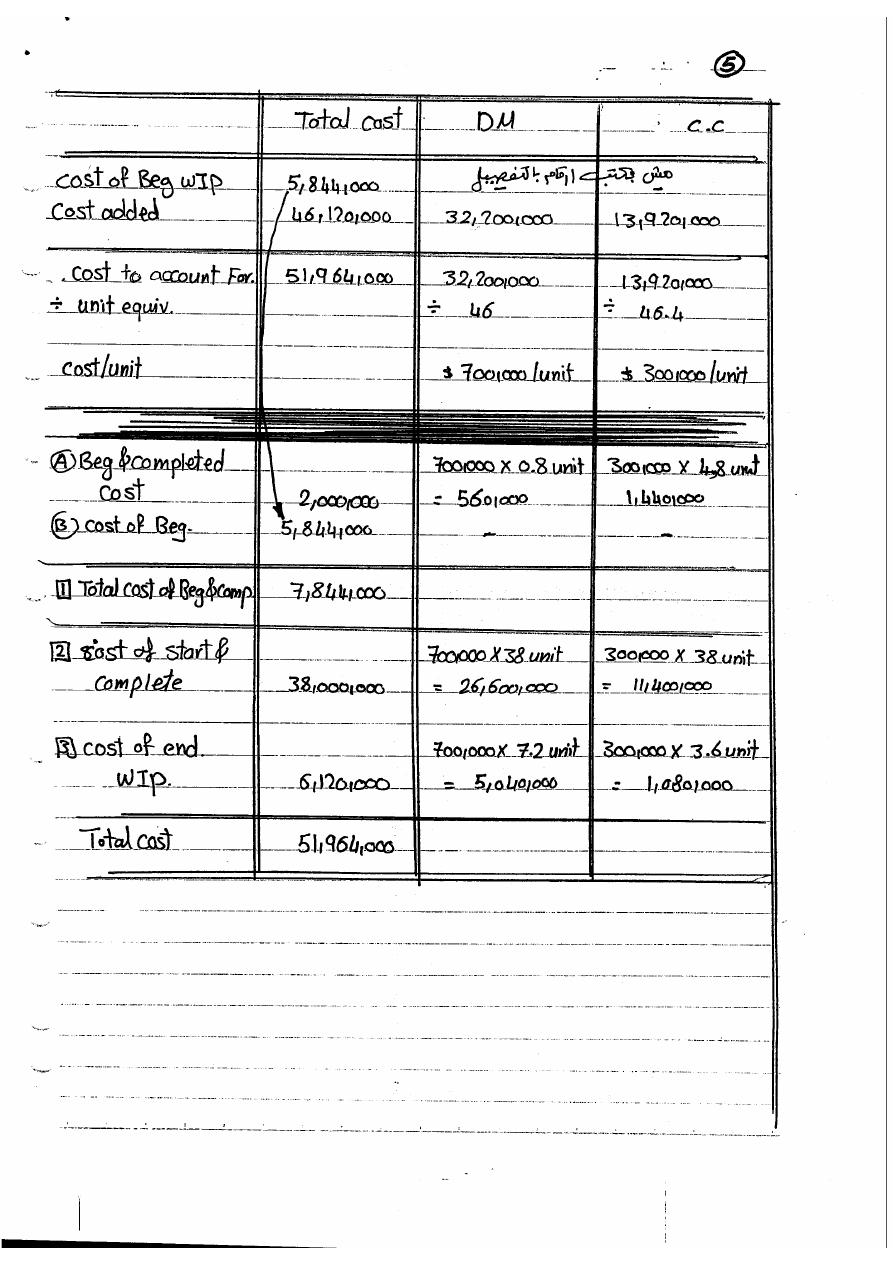 5
Total cost DM C.C
Cost of Beg WIP 5,844,000 مش بكتب أرقام بالتفصيل
Cost added 46,120,000 32,200,000 13,920,000
Cost to account For. 51,964,000 32,200,000 13,920,000
÷ unit equiv. ÷ 46 ÷ 46.4
Cost/unit $ 700,000/unit $ 300,000/unit
A Beg & completed 700,000 X 0.8 unit 300,000 X 4,8 unit
Cost 2,000,000 = 560,000 1,440,000
B cost of Beg. 5,844,000 - -
1 Total cost of Beg & comp. 7,844,000
2 cost of start & 700,000 X 38 unit 300,000 X 38 unit
Complete 38,000,000 = 26,600,000 = 11,400,000
3 cost of end 700,000 X 7.2 unit 300,000 X 3.6 unit
WIP. 6,120,000 = 5,040,000 = 1,080,000
Total cost 51,964,000